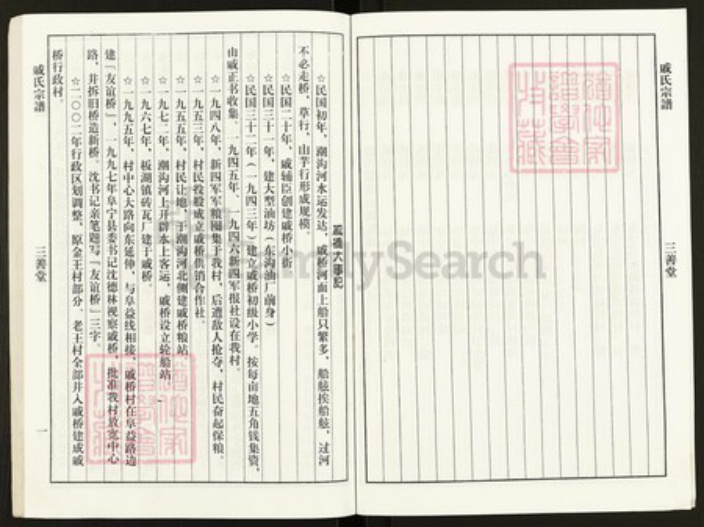 戚氏宗譜
三善堂
戚桥大事记
☆民国初年，潮沟河水运发达，戚桥河面上船只繁多，船舷挨船舷，过河
不必走桥，草行、山芋行形成规模。
☆民国二十年，戚辅臣创建戚桥小街
☆民国三十一年，建大型油坊(东沟油厂前身)
☆民国三十二年(一九四三年)建立戚桥初级小学。按每亩地五角钱集资，
由戚正书收集。一九四五年、一九四六新四军报社设在我村。
☆一九四八年，新四军军粮囤集于我村，后遭敌人抢夺，村民奋起保粮。
☆一九五三年，村民投股成立戚桥供销合作社。
☆一九五五年，村民让地，于潮沟河北侧建戚桥粮站。
☆一九七二年，潮沟河上开辟水上客运，戚桥设立轮船站。
☆一九六七年，板湖镇砖瓦厂建于戚桥。
☆一九九五年，村中心大路向东延伸，与阜益线相接，戚桥村在阜益路边
建「友谊桥」，一九九七年阜宁县委书记沈德林视察戚桥，批准我村放宽中心
路，并拆旧桥造新桥。沈书记亲笔题写「友谊桥」三字。
☆二〇〇二年行政区划调整，原金王村部分、老王村全部并入戚桥建成戚
桥行政村。
戚氏宗譜
三善堂
一
FamilySearch